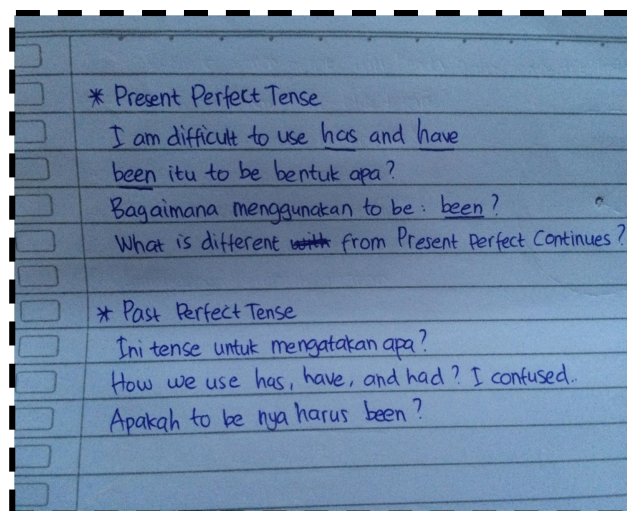 * Present Perfect Tense
I am difficult to use has and have
been itu to be bentuk apa?
Bagaimana menggunakan to be : been?
What is different with from Present Perfect Continues?
* Past Perfect Tense
Ini tense untuk mengatakan apa?
How we use has, have, and had? I confused..
Apakah to be nya harus been?